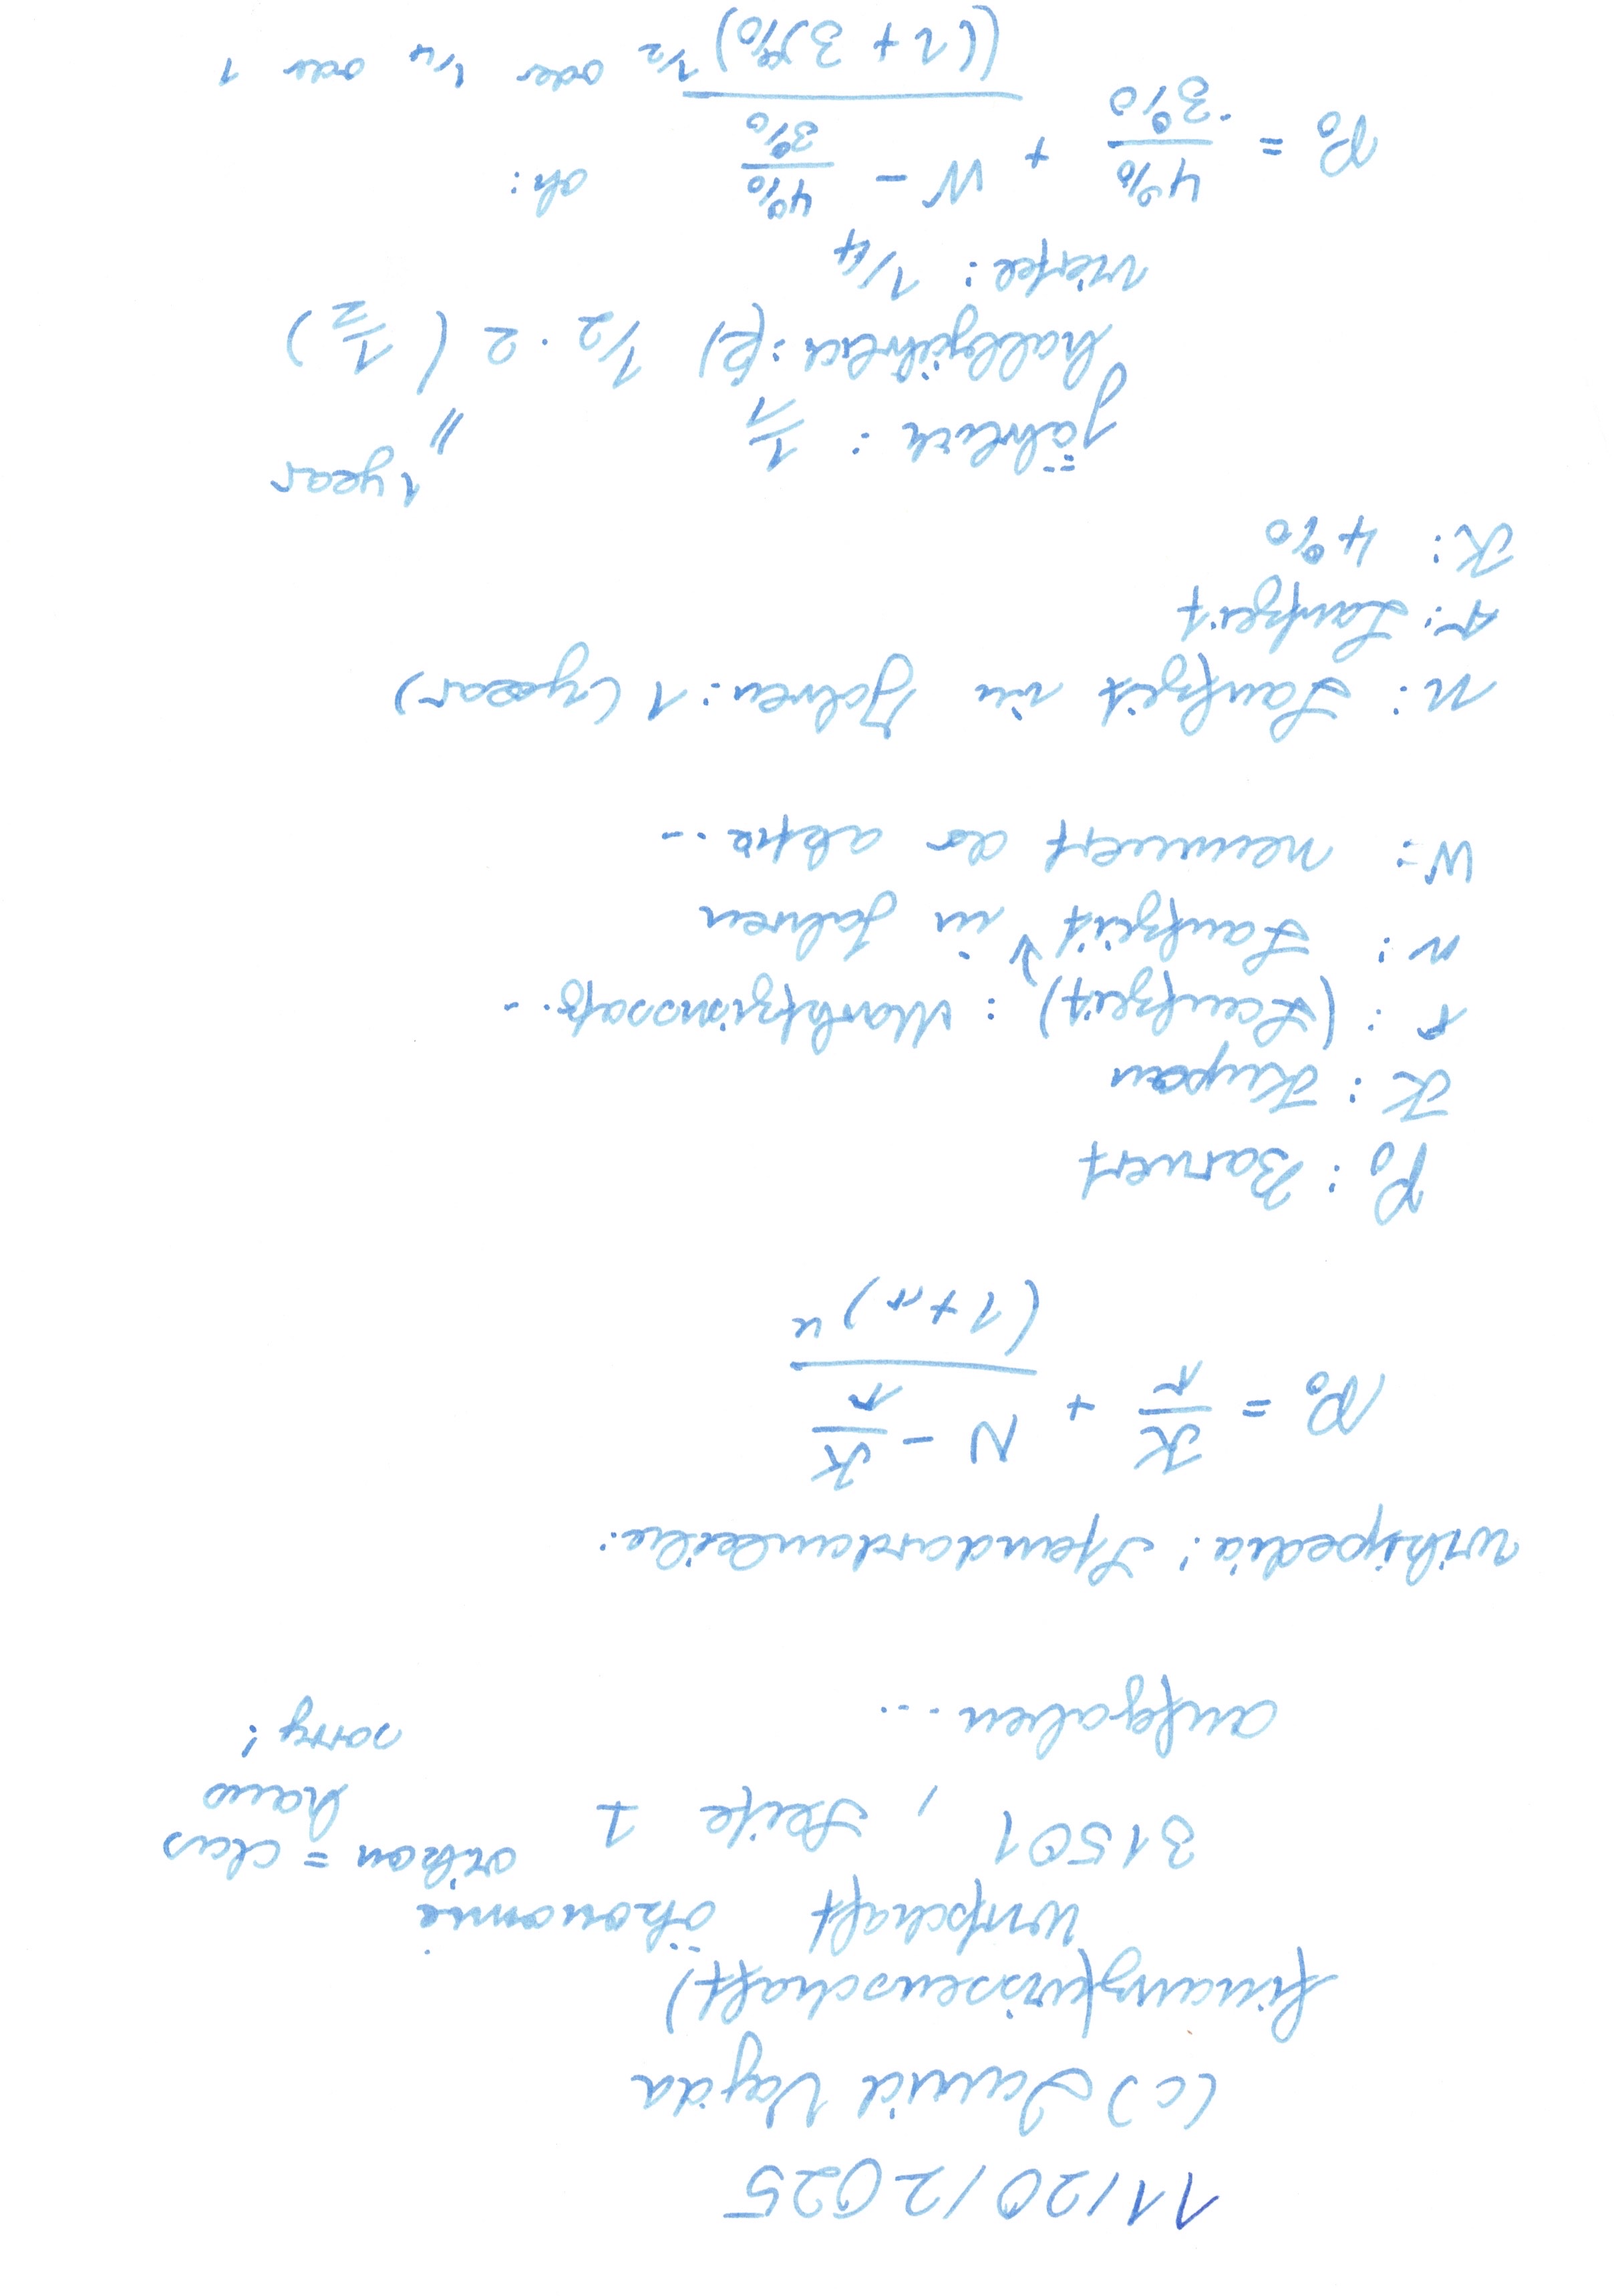 11/20/2025
(c) David Vajda
Finanz(wissenschaft)
Wirtschaft ökonomie
31501, Seite 1 oikon = das haus
sorry;
Aufgaben ...
Wikipedia: Standardanleihe:
P₀ = K/r + (N - K/r)/(1+r)ⁿ
P₀: Barwert
K: Kupon
r: (Laufzeit): Marktzinssatz...
n: Laufzeit in Jahren
N: nennwert der
n: Laufzeit in Jahren: 1 (year)
r: Laufzeit
K: 4%
1 year
Jährlich: 1/1 "
halbjährlich: 1/2 · 2 (1/2)
viertel: 1/4
P₀ = 4%/3% + (N - 4%/3%)/(1 + 3%)^1/2 oder 1/4 oder 1
oh: